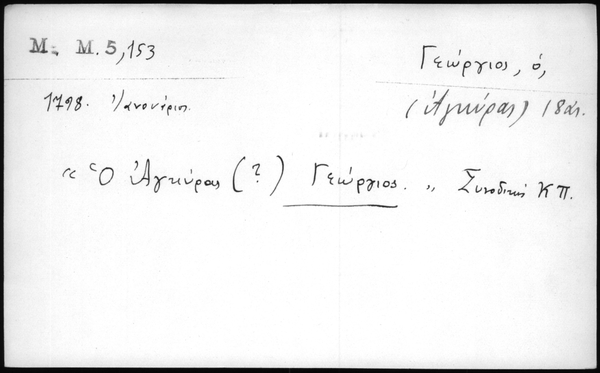 Μ. Μ. 5, 153
Γεώργιος, ὁ,
(Ἀγκύρας) 18 αι.
1798. Ἰανουάριος.
« Ὁ Ἀγκύρας (?) Γεώργιος. „ Συνοδικὴ ΚΠ.